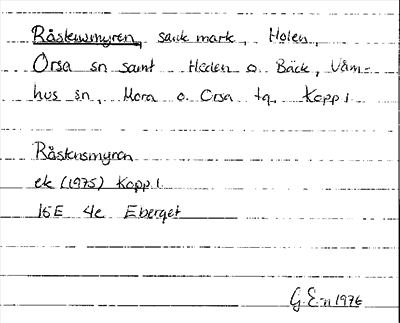 Råstensmyren, sank mark, Holen,
Orsa sn samt Heden o. Bäck, Våm-
hus sn, Mora o. Orsa tg. Kopp.l
Råstensmyren
ek (1975) Kopp.l.
15E 4e Eberget
G.E-n 1976